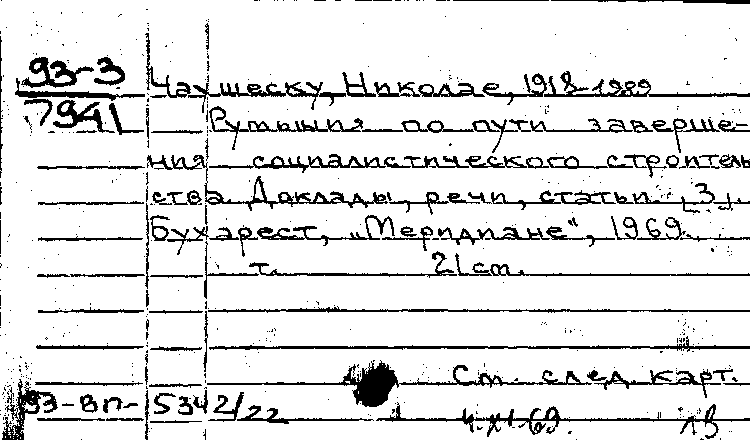 93-3
7941
Чаушеску, Николае, 1918-1989
Румыния по пути заверше-
ния социалистического строитель
ства. Доклады, речи, статьи. [3].
Бухарест, „Меридиане", 1969.
т. 21 см.
Ст. след. карт.
93-вп-5342/22
4-XI-69. 13